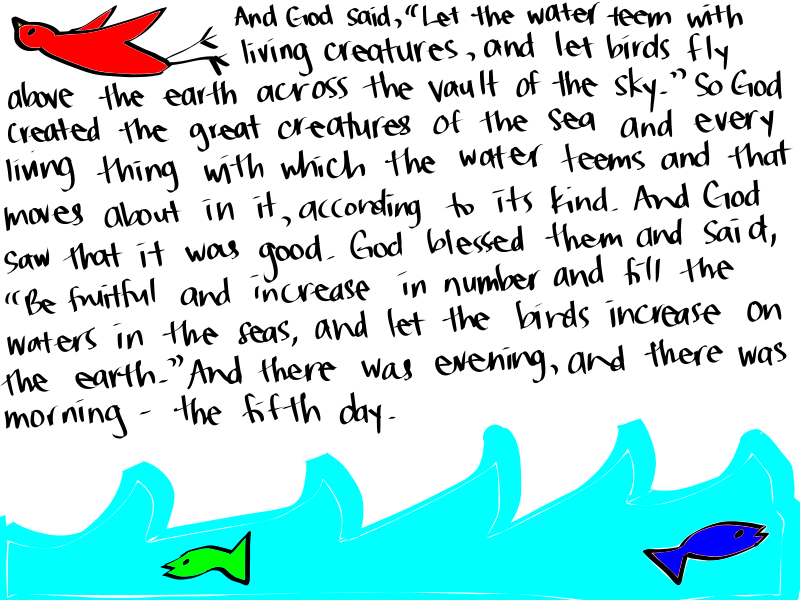 And God said, "Let the water teem with
living creatures, and let birds fly
above the earth across the vault of the sky." So God
created the great creatures of the sea and every
living thing with which the water teems and that
moves about in it, according to its kind. And God
saw that it was good. God blessed them and said,
"Be fruitful and increase in number and fill the
waters in the seas, and let the birds increase on
the earth." And there was evening, and there was
morning - the fifth day.